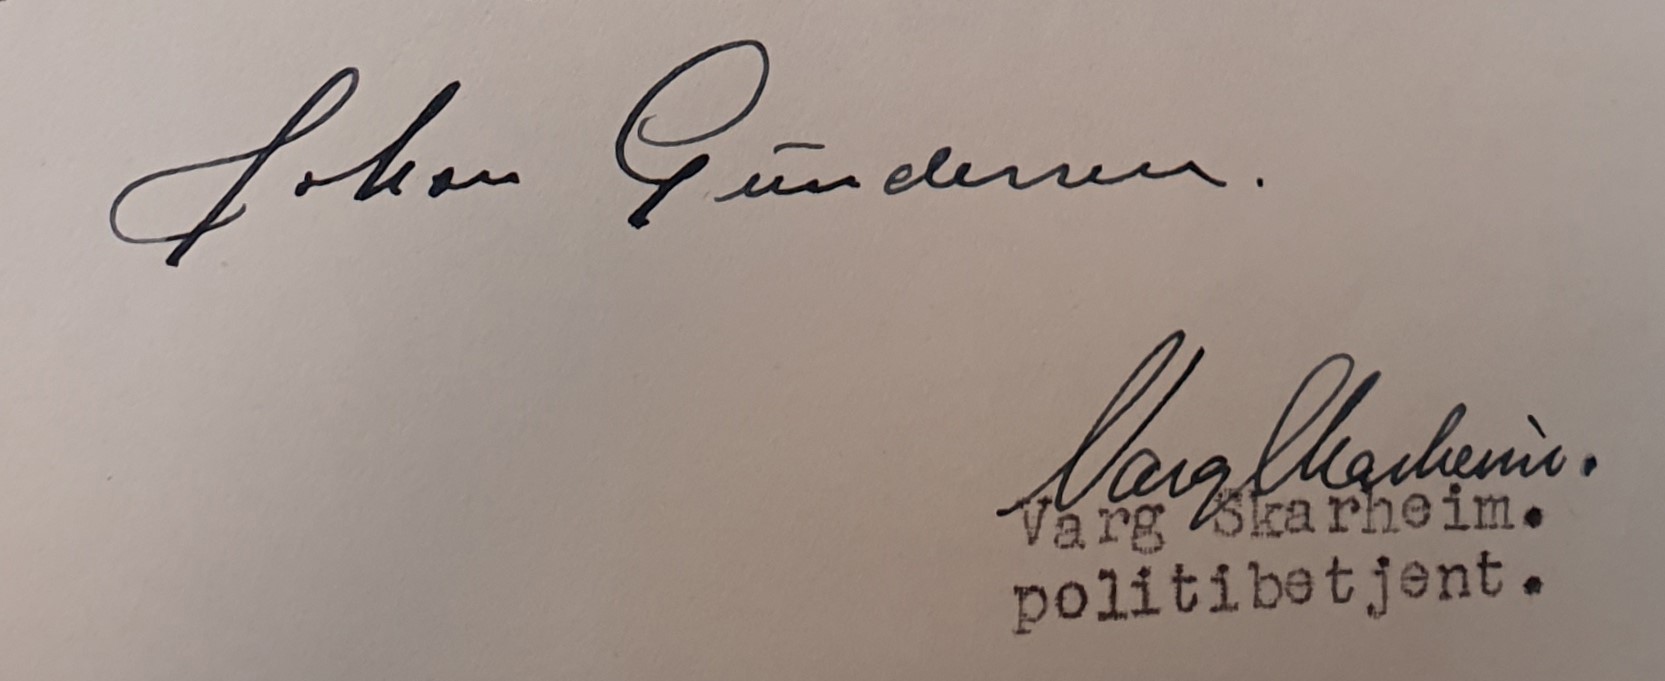 Johan Gundersen.
Varg Skarheim.
Varg Skarheim.
politibetjent.